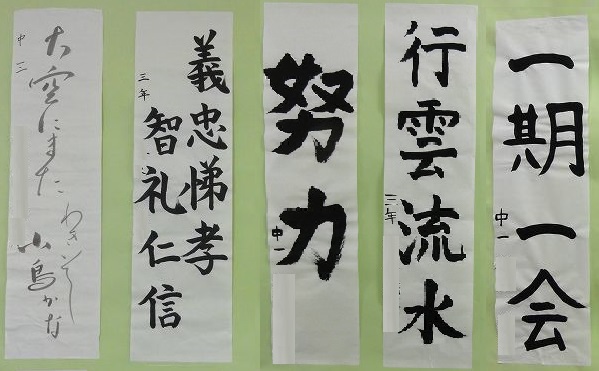 一期一会
中一
行雲流水
三年
努力
中一
義忠悌孝
智礼仁信
三年
大空にまた
わきいでし
小鳥かな
中三